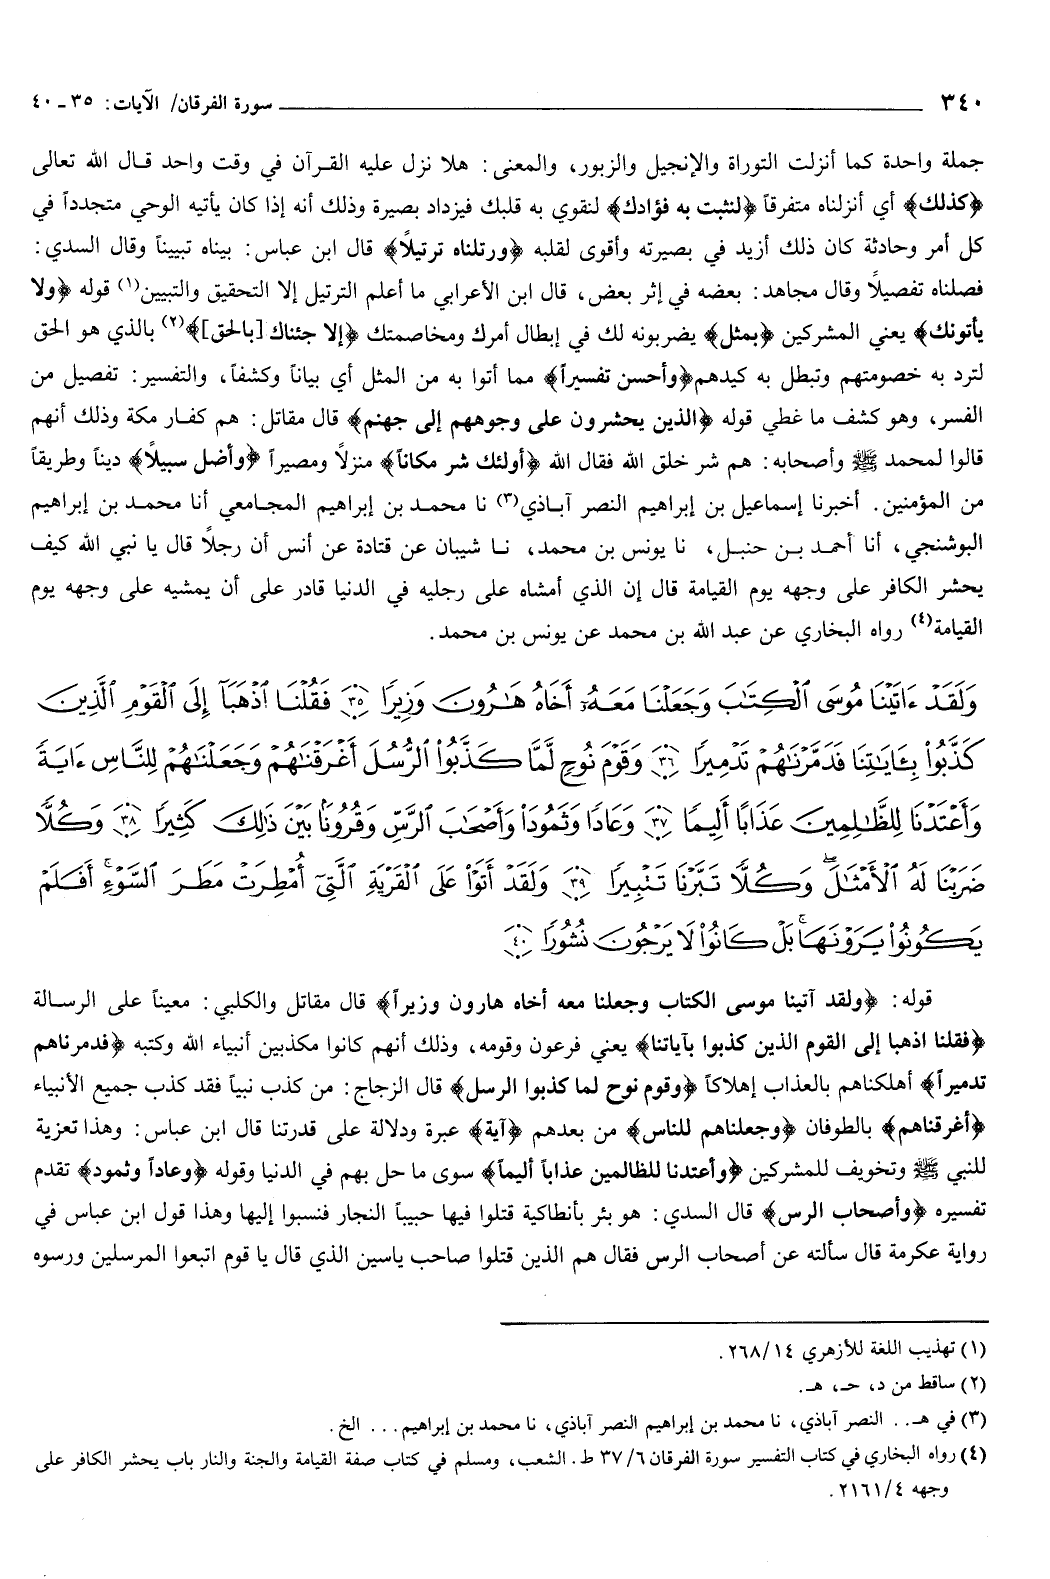 ٣٤٠ ــــــ سورة الفرقان/ الآيات: ٣٥ ـ ٤٠
جملة واحدة كما أنزلت التوراة والإنجيل والزبور، والمعنى: هلا نزل عليه القرآن في وقت واحد قال الله تعالى
﴿كذلك﴾ أي أنزلناه متفرقاً ﴿لنثبت به فؤادك﴾ لنقوي به قلبك فيزداد بصيرة وذلك أنه إذا كان يأتيه الوحي متجدداً في
كل أمر وحادثة كان ذلك أزيد في بصيرته وأقوى لقلبه ﴿ورتلناه ترتيلاً﴾ قال ابن عباس: بيناه تبييناً وقال السدي:
فصلناه تفصيلاً وقال مجاهد: بعضه في إثر بعض، قال ابن الأعرابي ما أعلم الترتيل إلا التحقيق والتبيين(١) قوله ﴿ولا
يأتونك﴾ يعني المشركين ﴿بمثل﴾ يضربونه لك في إبطال أمرك ومخاصمتك ﴿إلا جئناك [بالحق]﴾(٢) بالذي هو الحق
لترد به خصومتهم وتبطل به كيدهم﴿وأحسن تفسيراً﴾ مما أتوا به من المثل أي بياناً وكشفاً، والتفسير: تفصيل من
الفسر، وهو كشف ما غطي قوله ﴿الذين يحشرون على وجوههم إلى جهنم﴾ قال مقاتل: هم كفار مكة وذلك أنهم
قالوا لمحمد ﷺ وأصحابه: هم شر خلق الله فقال الله ﴿أولئك شر مكاناً﴾ منزلاً ومصيراً ﴿وأضل سبيلاً﴾ ديناً وطريقاً
من المؤمنين. أخبرنا إسماعيل بن إبراهيم النصر آباذي(٣) نا محمد بن إبراهيم المجامعي أنا محمد بن إبراهيم
البوشنجي، أنا أحمد بن حنبل، نا يونس بن محمد، نا شيبان عن قتادة عن أنس أن رجلاً قال يا نبي الله كيف
يحشر الكافر على وجهه يوم القيامة قال إن الذي أمشاه على رجليه في الدنيا قادر على أن يمشيه على وجهه يوم
القيامة(٤) رواه البخاري عن عبد الله بن محمد عن يونس بن محمد.
وَلَقَدْ ءَاتَيْنَا مُوسَى ٱلْكِتَٰبَ وَجَعَلْنَا مَعَهُۥٓ أَخَاهُ هَٰرُونَ وَزِيرًا ﴿٣٥﴾ فَقُلْنَا ٱذْهَبَآ إِلَى ٱلْقَوْمِ ٱلَّذِينَ
كَذَّبُوا۟ بِـَٔايَٰتِنَا فَدَمَّرْنَٰهُمْ تَدْمِيرًا ﴿٣٦﴾ وَقَوْمَ نُوحٍ لَّمَّا كَذَّبُوا۟ ٱلرُّسُلَ أَغْرَقْنَٰهُمْ وَجَعَلْنَٰهُمْ لِلنَّاسِ ءَايَةً
وَأَعْتَدْنَا لِلظَّٰلِمِينَ عَذَابًا أَلِيمًا ﴿٣٧﴾ وَعَادًا وَثَمُودَا۟ وَأَصْحَٰبَ ٱلرَّسِّ وَقُرُونًۢا بَيْنَ ذَٰلِكَ كَثِيرًا ﴿٣٨﴾ وَكُلًّا
ضَرَبْنَا لَهُ ٱلْأَمْثَٰلَ ۖ وَكُلًّا تَبَّرْنَا تَتْبِيرًا ﴿٣٩﴾ وَلَقَدْ أَتَوْا۟ عَلَى ٱلْقَرْيَةِ ٱلَّتِىٓ أُمْطِرَتْ مَطَرَ ٱلسَّوْءِ ۚ أَفَلَمْ
يَكُونُوا۟ يَرَوْنَهَا ۚ بَلْ كَانُوا۟ لَا يَرْجُونَ نُشُورًا ﴿٤٠﴾
قوله: ﴿ولقد آتينا موسى الكتاب وجعلنا معه أخاه هارون وزيراً﴾ قال مقاتل والكلبي: معيناً على الرسالة
﴿فقلنا اذهبا إلى القوم الذين كذبوا بآياتنا﴾ يعني فرعون وقومه، وذلك أنهم كانوا مكذبين أنبياء الله وكتبه ﴿فدمرناهم
تدميراً﴾ أهلكناهم بالعذاب إهلاكاً ﴿وقوم نوح لما كذبوا الرسل﴾ قال الزجاج: من كذب نبياً فقد كذب جميع الأنبياء
﴿أغرقناهم﴾ بالطوفان ﴿وجعلناهم للناس﴾ من بعدهم ﴿آية﴾ عبرة ودلالة على قدرتنا قال ابن عباس: وهذا تعزية
للنبي ﷺ وتخويف للمشركين ﴿وأعتدنا للظالمين عذاباً أليماً﴾ سوى ما حل بهم في الدنيا وقوله ﴿وعاداً وثمود﴾ تقدم
تفسيره ﴿وأصحاب الرس﴾ قال السدي: هو بئر بأنطاكية قتلوا فيها حبيباً النجار فنسبوا إليها وهذا قول ابن عباس في
رواية عكرمة قال سألته عن أصحاب الرس فقال هم الذين قتلوا صاحب ياسين الذي قال يا قوم اتبعوا المرسلين ورسوه
(١) تهذيب اللغة للأزهري ٢٦٨/١٤.
(٢) ساقط من د، حـ، هـ.
(٣) في هـ.. النصر آباذي، نا محمد بن إبراهيم النصر آباذي، نا محمد بن إبراهيم... الخ.
(٤) رواه البخاري في كتاب التفسير سورة الفرقان ٣٧/٦ ط. الشعب، ومسلم في كتاب صفة القيامة والجنة والنار باب يحشر الكافر على
وجهه ٢١٦١/٤.